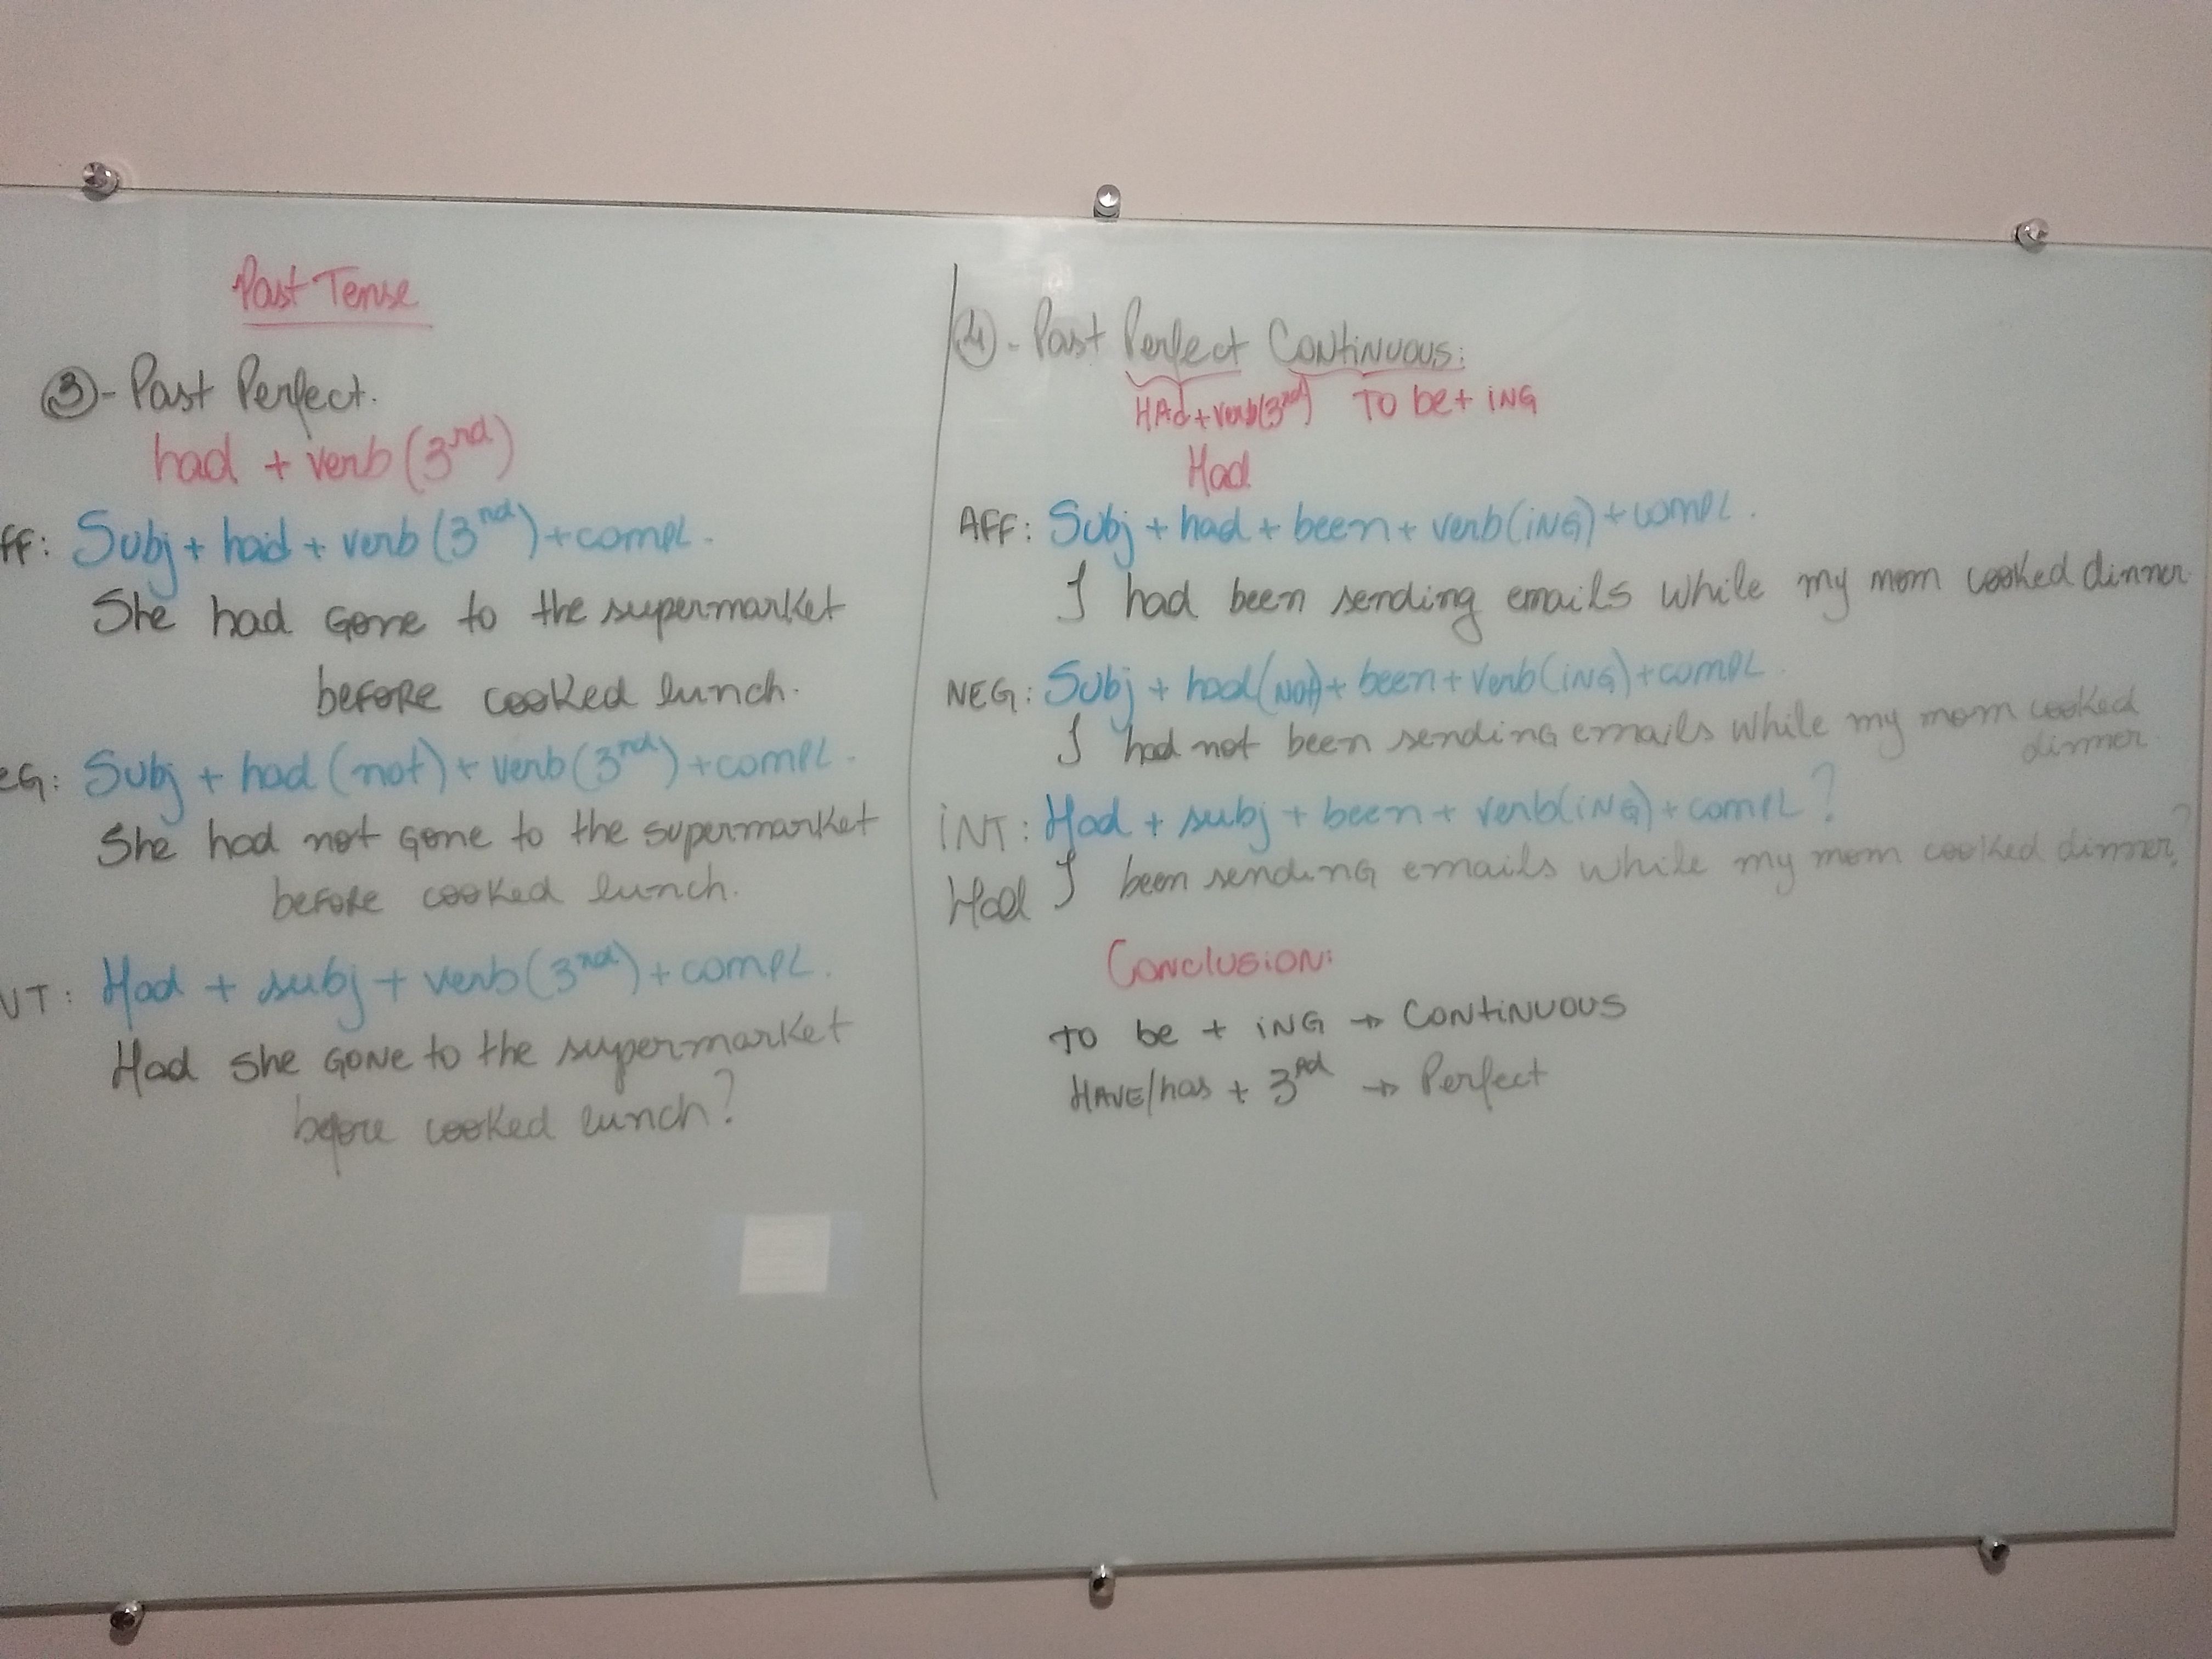 Past Tense
③- Past Perfect.
had + verb (3nd)
FF: Subj + had + verb (3nd) + compl.
She had gone to the supermarket
before cooked lunch.
eG: Subj + had (not) + verb (3nd) + compl.
She had not gone to the supermarket
before cooked lunch.
NT: Had + subj + verb (3nd) + compl.
Had she gone to the supermarket
before cooked lunch?
④- Past Perfect Continuous:
HAd + verb (3nd) TO be + iNG
Had
AFF: Subj + had + been + verb (iNG) + compl.
I had been sending emails while my mom cooked dinner.
NEG: Subj + had (NOt) + been + verb (iNG) + compl.
I had not been sending emails while my mom cooked
dinner.
iNT: Had + subj + been + verb (iNG) + compl?
Had I been sending emails while my mom cooked dinner?
Conclusion:
TO be + iNG → CONtiNUOUS
HAVE/has + 3rd → Perfect